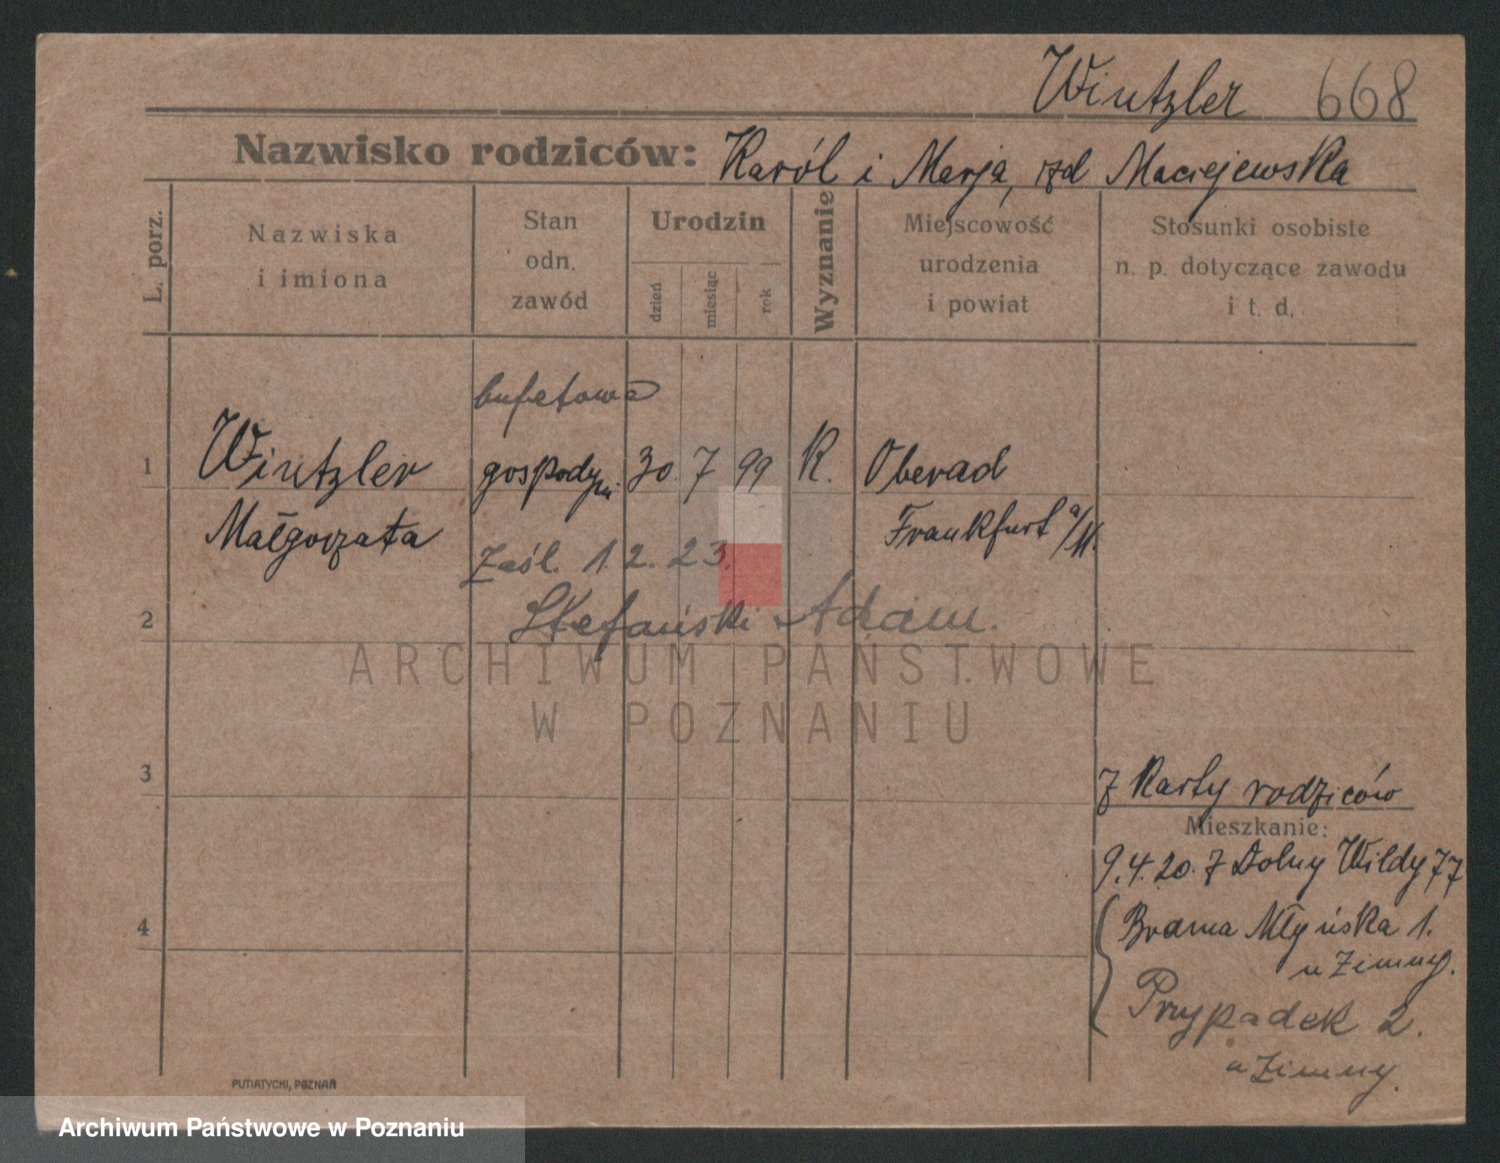 Wintzler 668
Nazwisko rodziców: Karól i Marja, rzd Maciejewska
L. porz.
Nazwiska
i imiona
Stan
odn.
zawód
Urodzin
dzień
miesiąc
rok
Wyznanie
Miejscowość
urodzenia
i powiat
Stosunki osobiste
n. p. dotyczące zawodu
i t. d.
bufetowa
1 Wintzler gospodyni 30. 7 99 K. Oberad
Małgorzata Frankfurt a/M.
Zaśl. 1. 2. 23.
2 Stefański Adam.
ARCHIWUM PAŃSTWOWE
W POZNANIU
3
z Karty rodziców
Mieszkanie:
9.4.20. z Dolny Wildy 77
4 Brama Młyńska 1.
u Zimny.
Przypadek 2.
u Zimny.
PUTIATYCKI, POZNAŃ
Archiwum Państwowe w Poznaniu